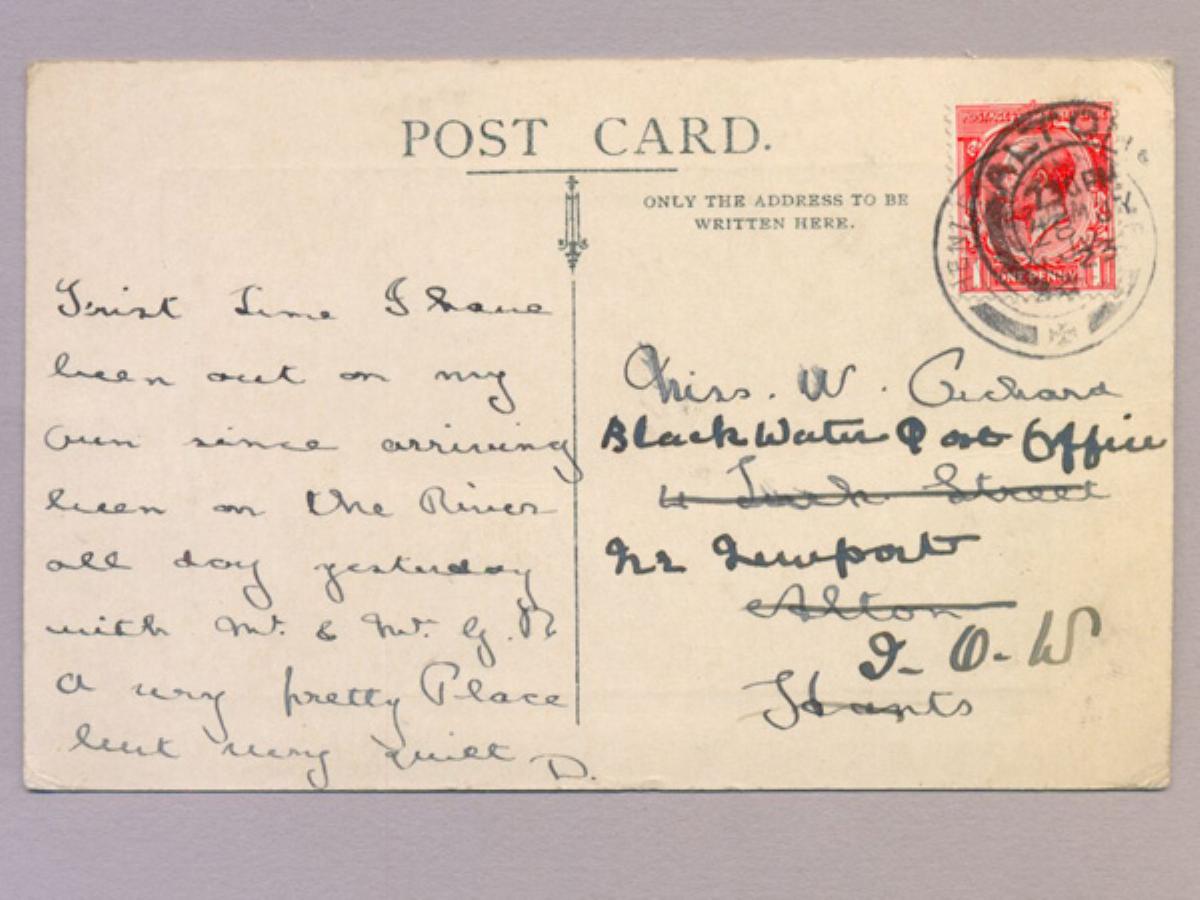 POST CARD.
ONLY THE ADDRESS TO BE
WRITTEN HERE.
ALTON
23
ONE PENNY
First time I have
been out on my
own since arriving
been on the River
all day yesterday
with Mr. & Mr. G.R
a very pretty Place
but very quiet D.
Miss. W. Orchard
BlackWater Post Office
4 Street
Nr Newport
Alton
I-O-W
Hants